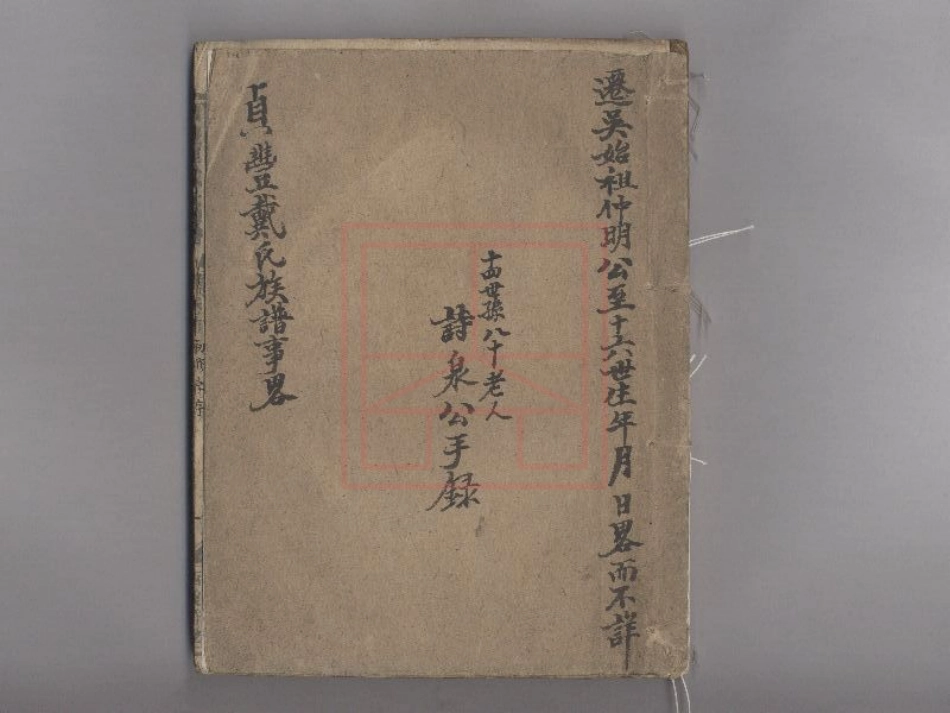 遷吳始祖仲明公至十六世生年月日畧而不詳
十四世孫八十老人
詩泉公手錄
貞豐戴氏族譜事畧